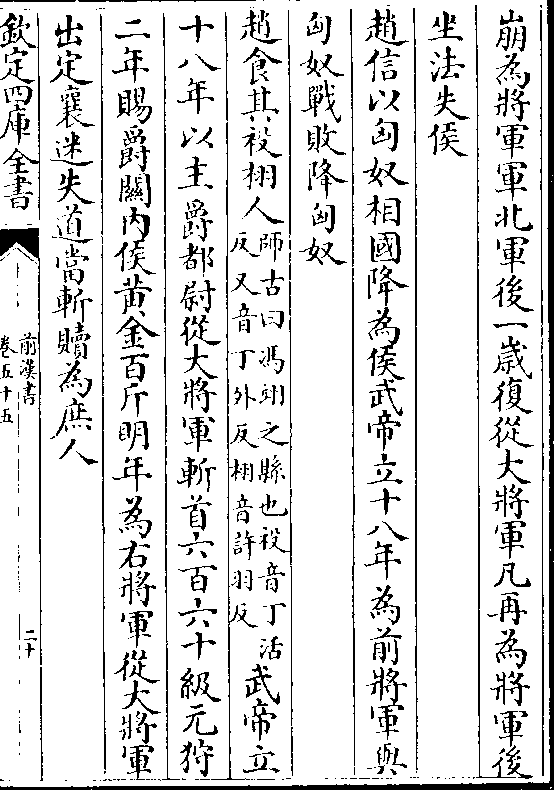 崩為將軍軍北軍後一嵗復從大將軍凡再為將軍後
坐法失侯
趙信以匈奴相國降為侯武帝立十八年為前將軍與
匈奴戰敗降匈奴
趙食其祋栩人師古曰馮翊之縣也祋音丁活
反又音丁外反栩音許羽反武帝立
十八年以主爵都尉從大將軍斬首六百六十級元狩
二年賜爵關内侯黄金百斤明年為右將軍從大將軍
出定襄迷失道當斬贖為庶人
欽定四庫全書
前漢書
卷五十五
二十